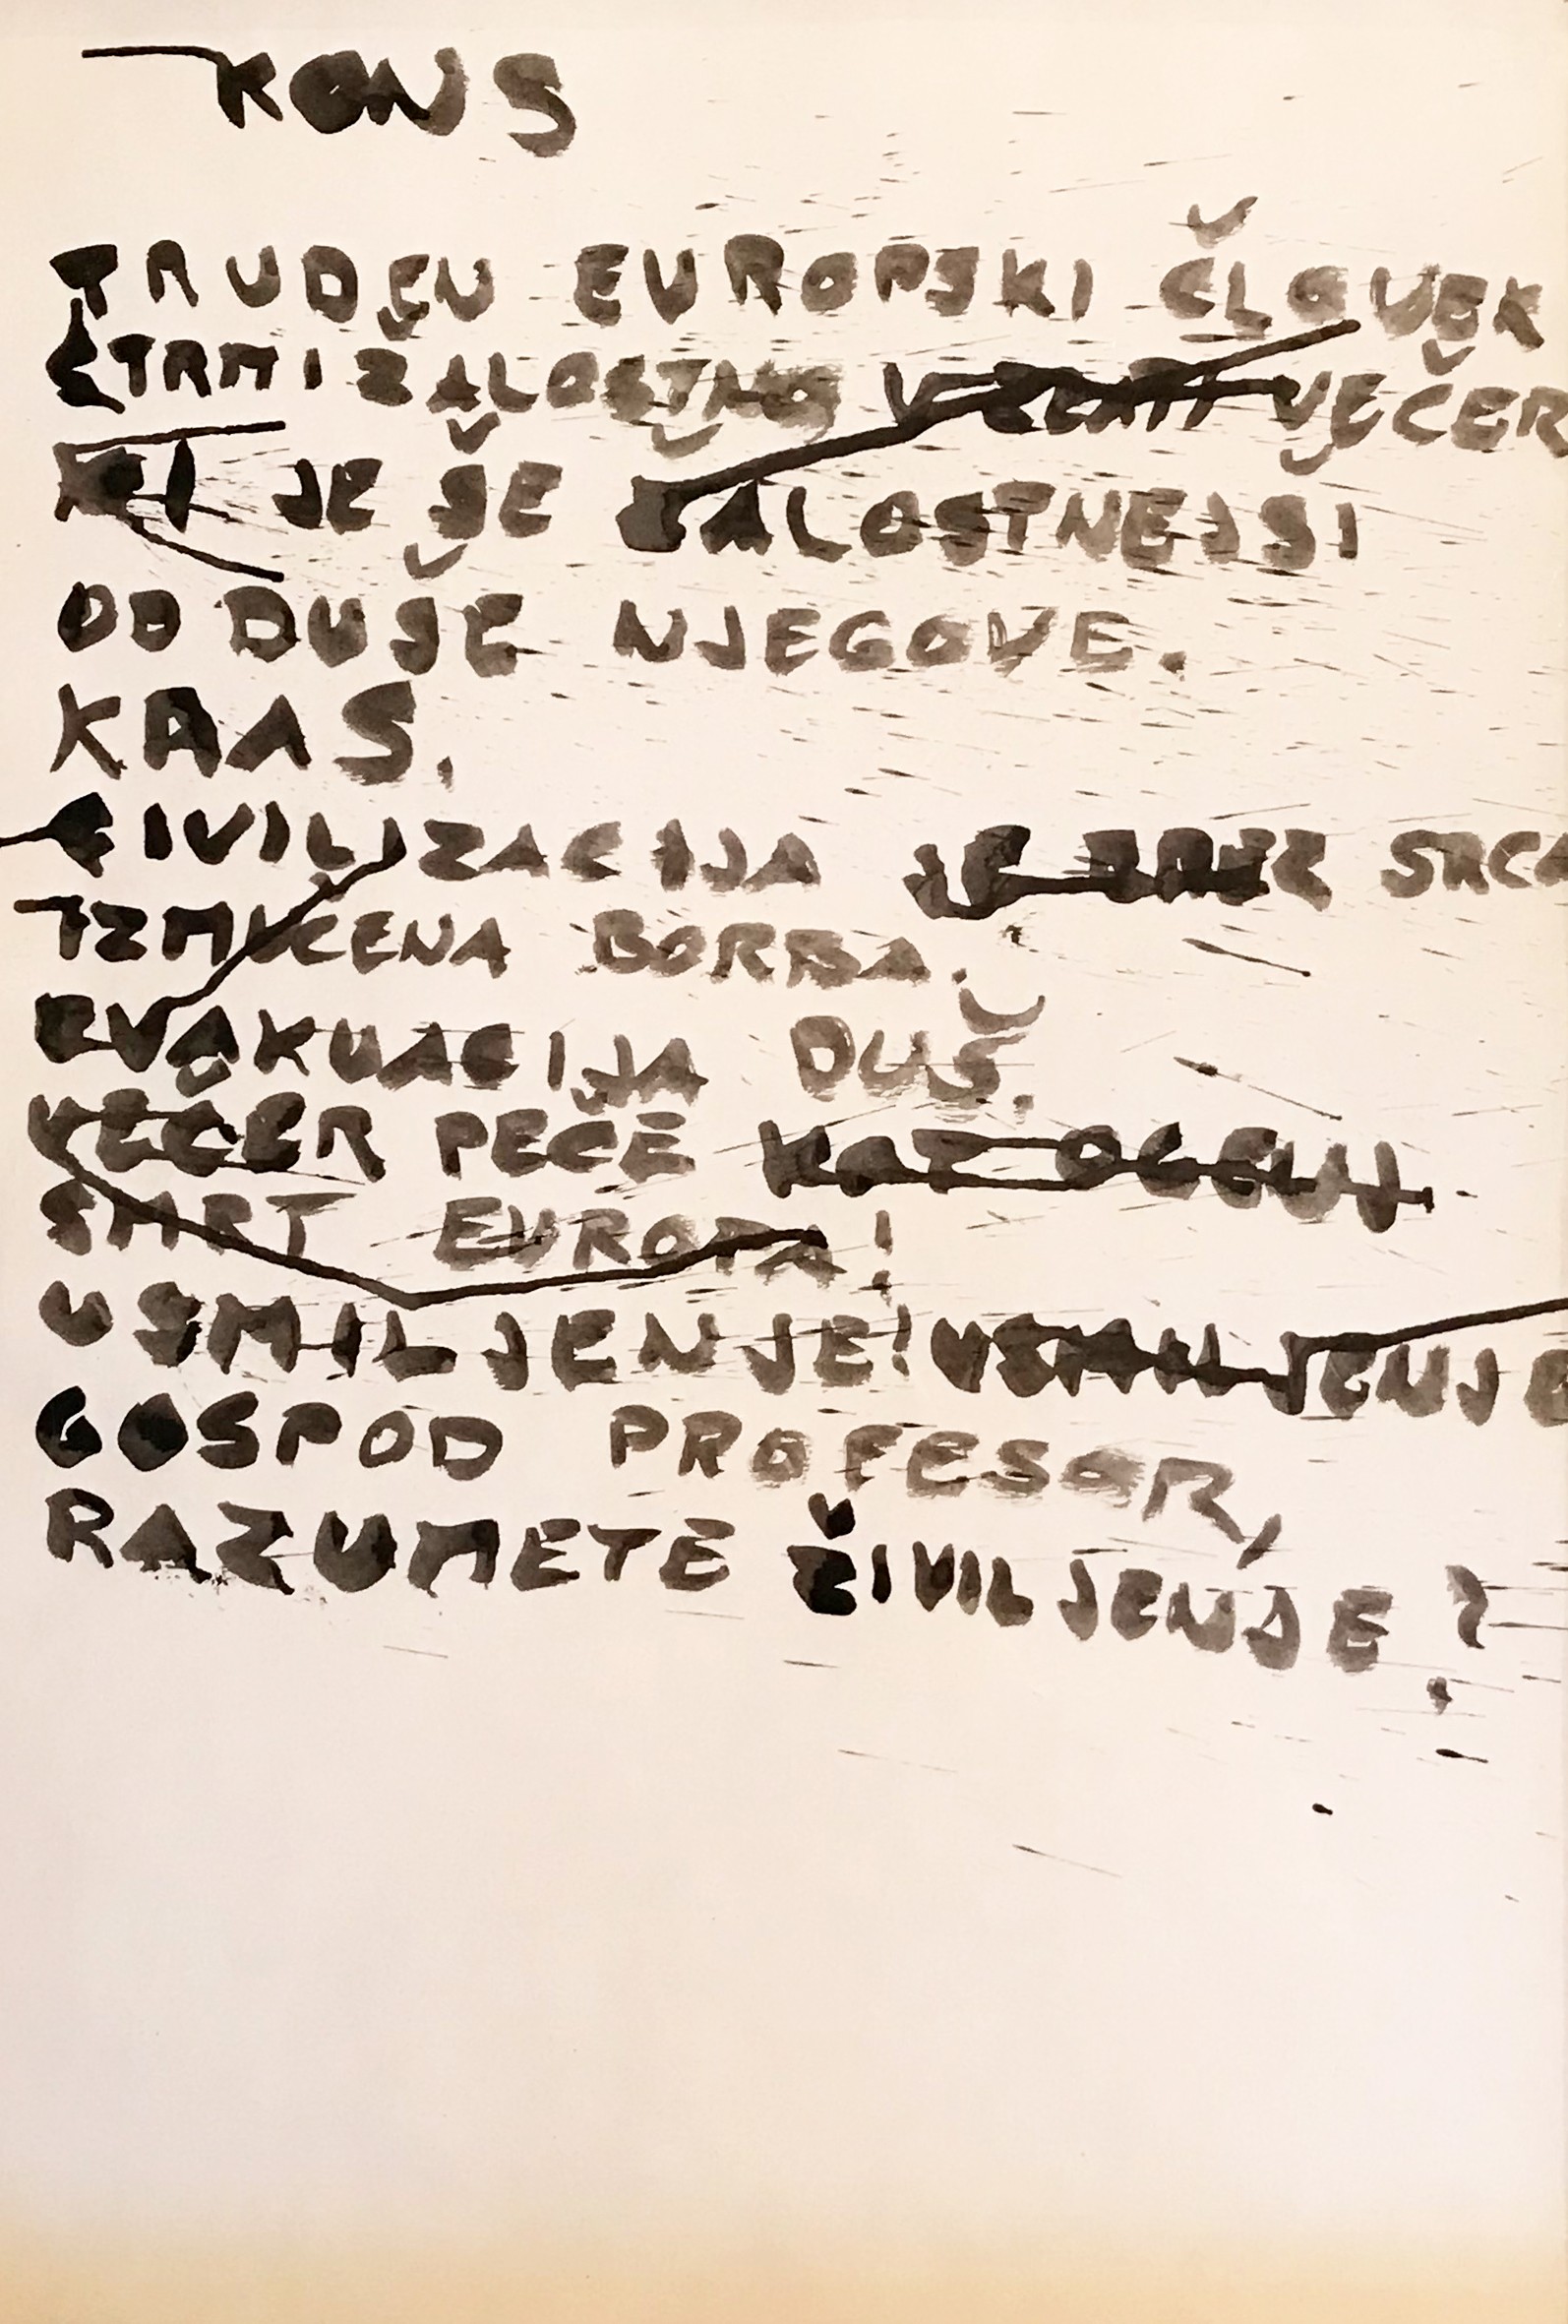 KONS
TRUDEN EVROPSKI ČLOVEK
STRMI ŽALOSTNO V ZLATI VEČER
KI JE ŠE ŽALOSTNEJŠI
OD DUŠE NJEGOVE.
KRAS.
CIVILIZACIJA JE BREZ SRCA
IZMUCENA BORBA.
EVAKUACIJA DUŠ.
VEČER PEČE KOT OGENJ.
SMRT EVROPA!
USMILJENJE! USMILJENJE
GOSPOD PROFESOR,
RAZUMETE ŽIVILJENJE?